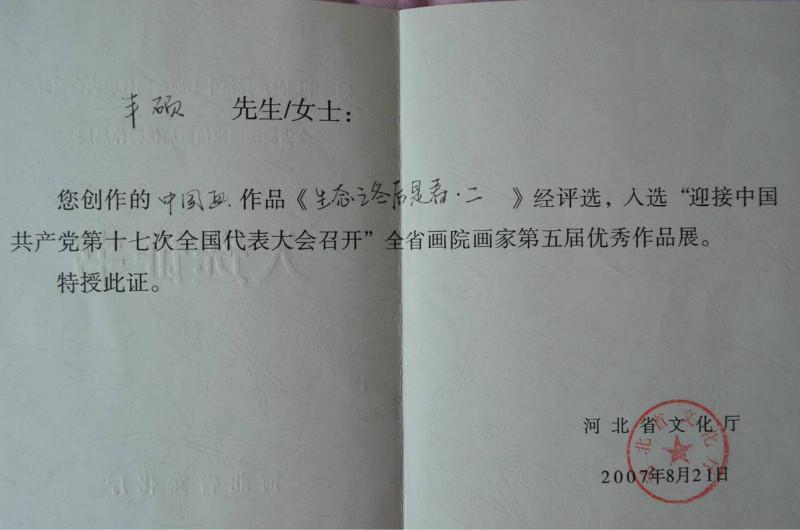 丰硕 先生/女士：
您创作的中国画作品《生态之冬后是春·二》经评选，入选“迎接中国
共产党第十七次全国代表大会召开”全省画院画家第五届优秀作品展。
特授此证。
河北省文化厅
2007年8月21日